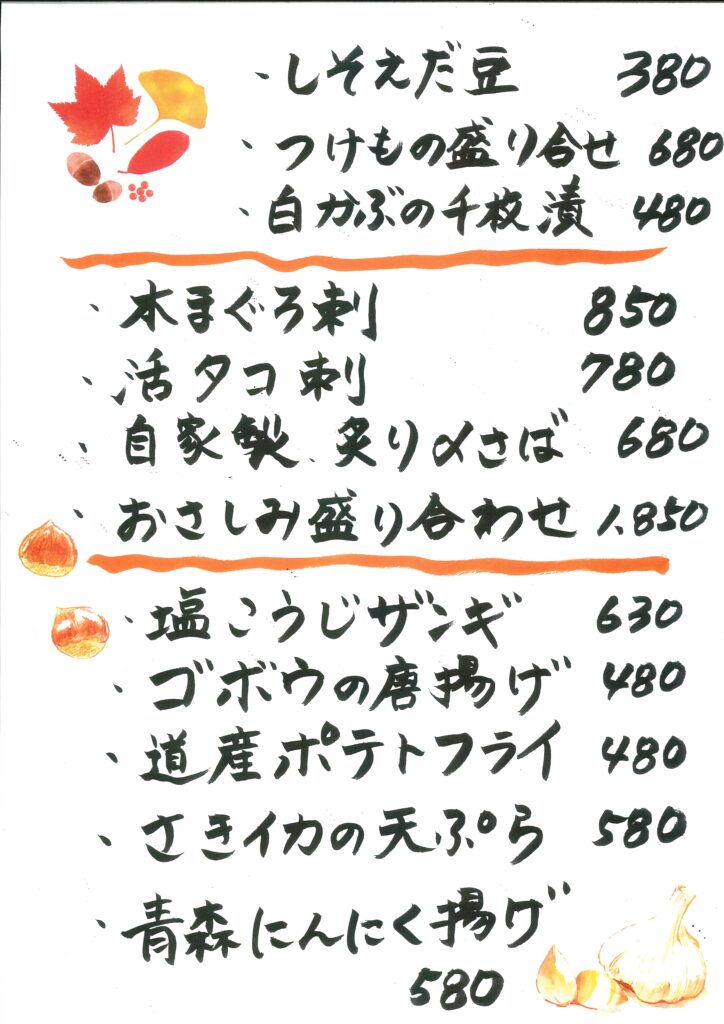 ・しそえだ豆 380
・つけもの盛り合せ 680
・白かぶの千枚漬 480
・本まぐろ刺 850
・活タコ刺 780
・自家製、炙り〆さば 680
・おさしみ盛り合わせ 1,850
・塩こうじザンギ 630
・ゴボウの唐揚げ 480
・道産ポテトフライ 480
・さきイカの天ぷら 580
・青森にんにく揚げ
580